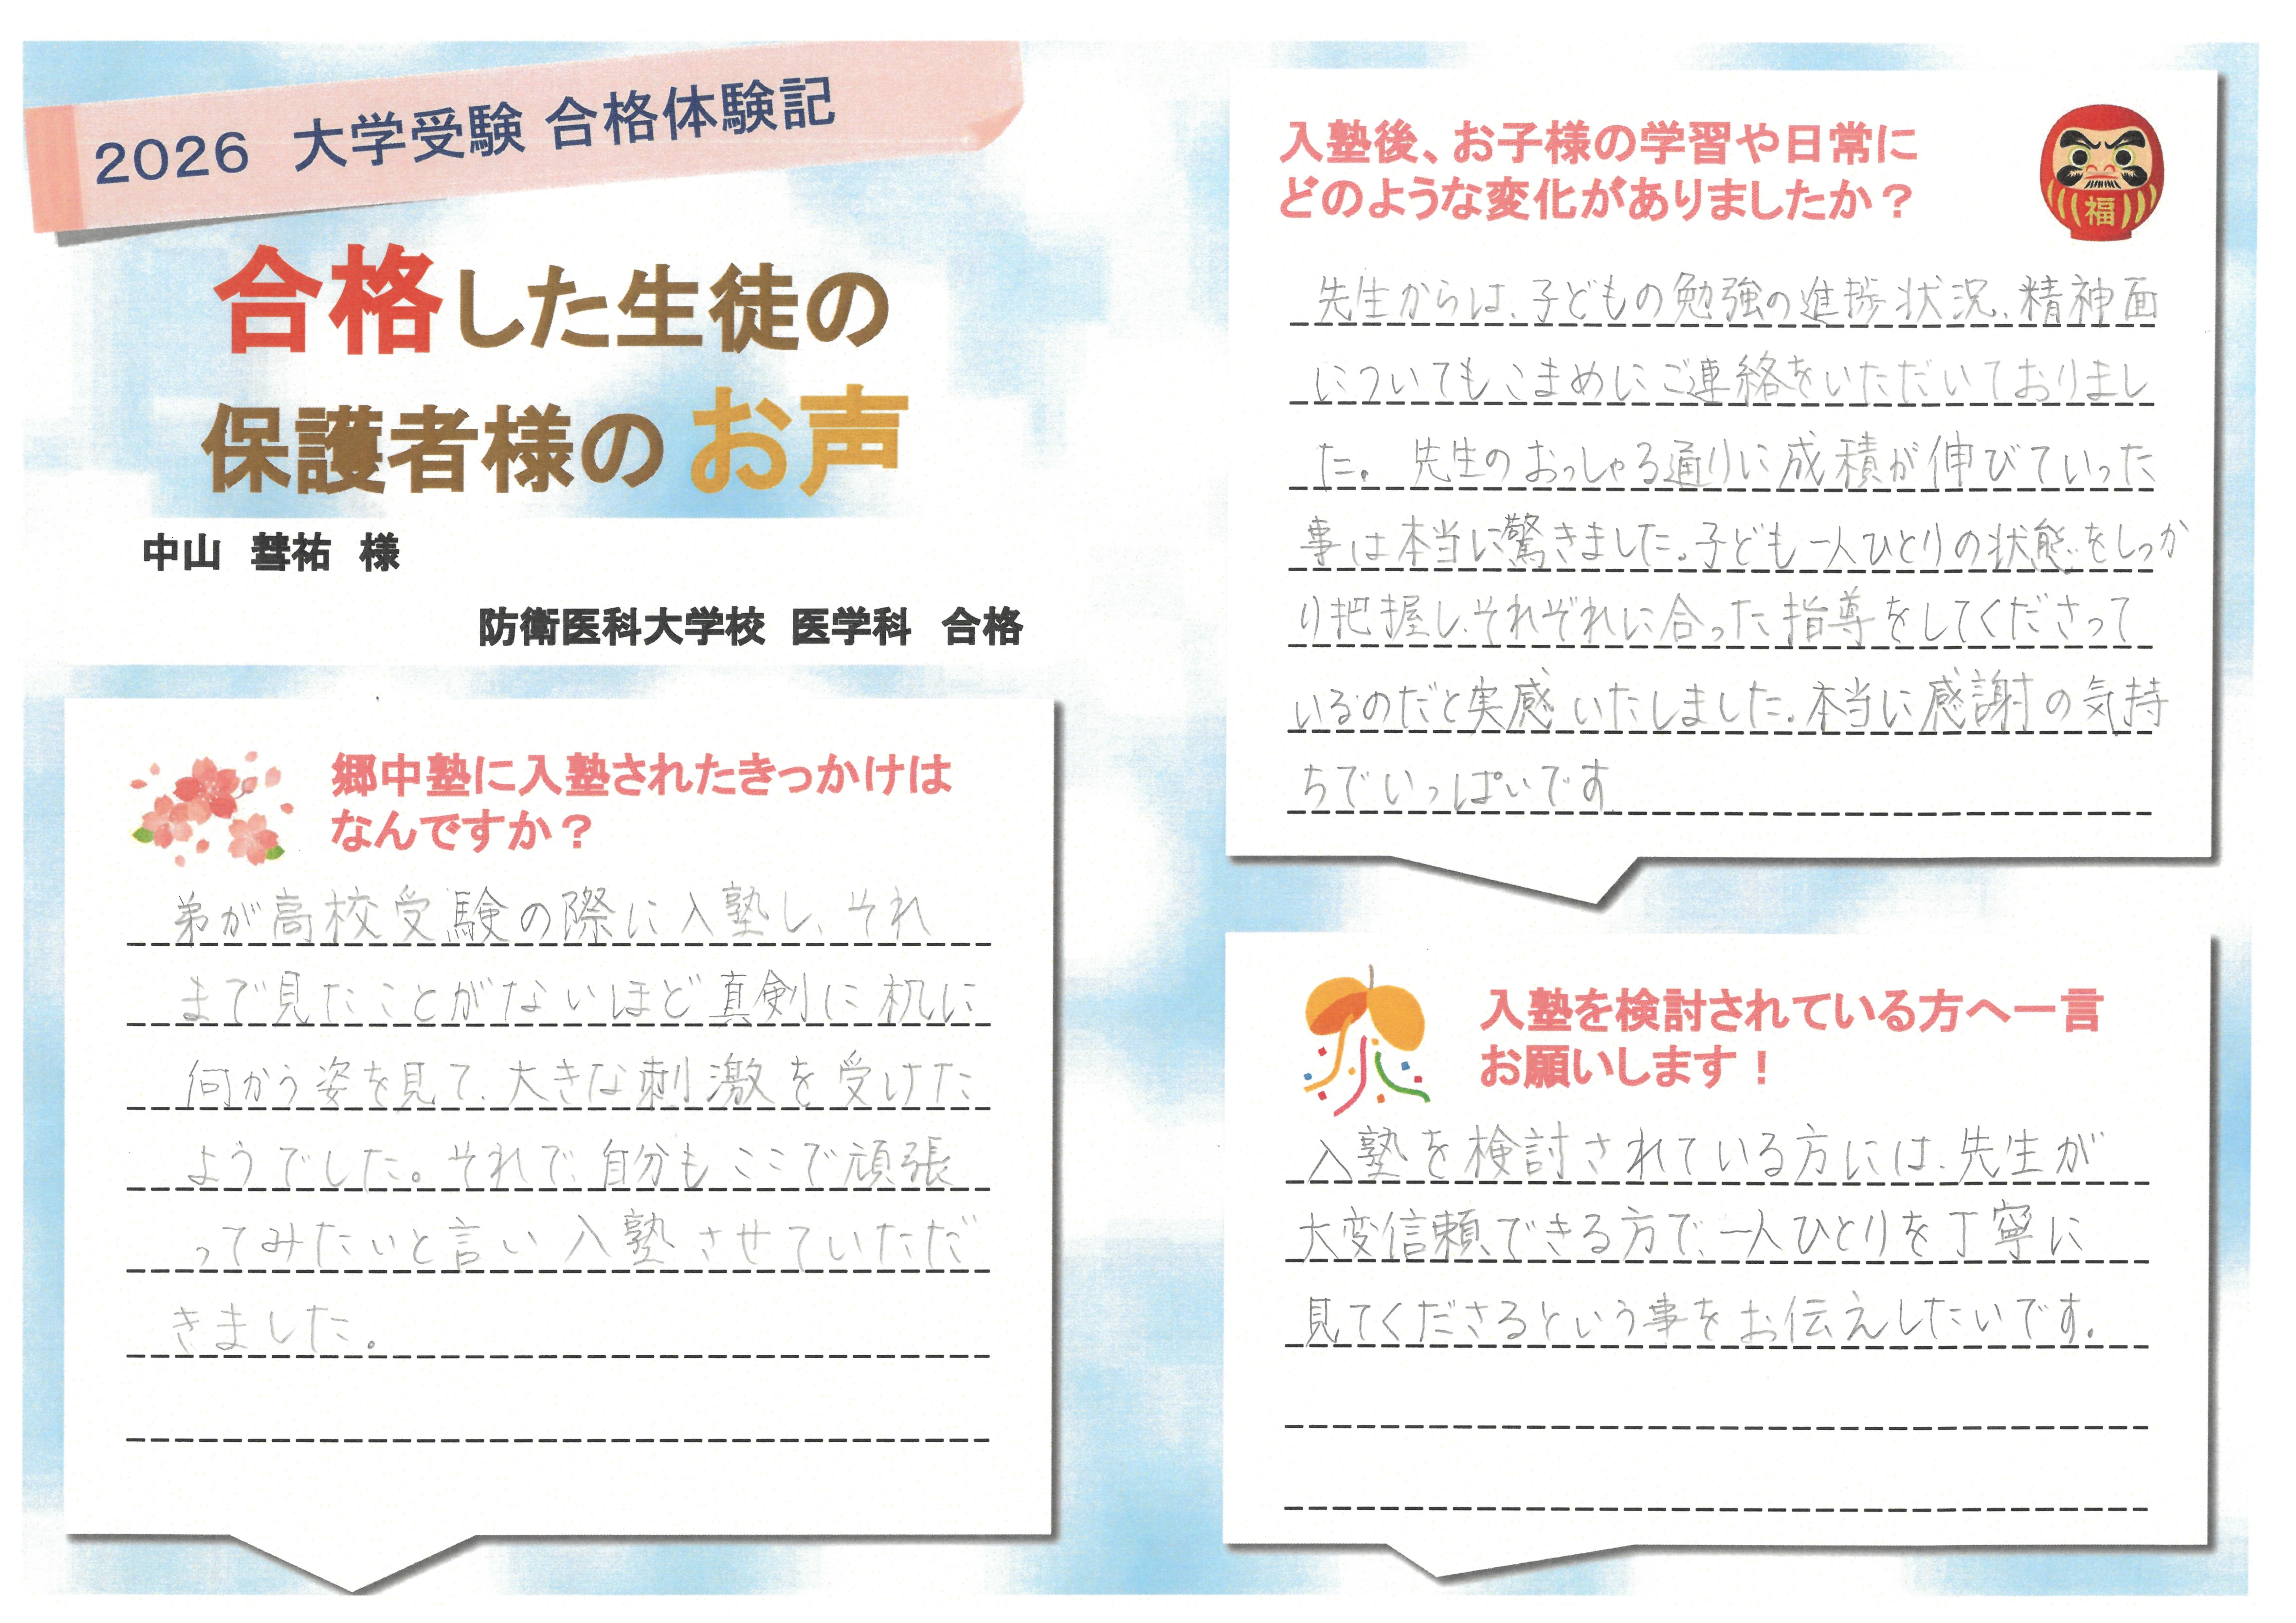 2026 大学受験 合格体験記
合格した生徒の
保護者様のお声
中山 彗祐 様
防衛医科大学校 医学科 合格
郷中塾に入塾されたきっかけは
なんですか？
弟が高校受験の際に入塾し、それ
まで見たことがないほど真剣に机に
向かう姿を見て、大きな刺激を受けた
ようでした。それで、自分もここで頑張
ってみたいと言い入塾させていただ
きました。
入塾後、お子様の学習や日常に
どのような変化がありましたか？
福
先生からは、子どもの勉強の進捗状況、精神面
についてもこまめにご連絡をいただいておりまし
た。先生のおっしゃる通りに成績が伸びていった
事は本当に驚きました。子ども一人ひとりの状態をしっか
り把握し、それぞれに合った指導をしてくださって
いるのだと実感いたしました。本当に感謝の気持
ちでいっぱいです
入塾を検討されている方へ一言
お願いします！
入塾を検討されている方には、先生が
大変信頼できる方で、一人ひとりを丁寧に
見てくださるという事をお伝えしたいです。